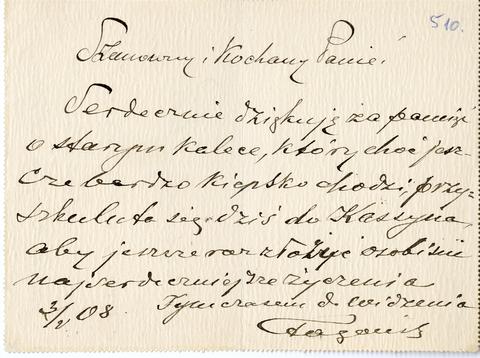 510.
Szanowny i Kochany Panie!
Serdecznie dziękuję za pamięć
o starym kalece, który choć jesz-
cze bardzo kiepsko chodzi, przy-
sztuluta się dziś do Kassyna,
aby jeszcze raz złożyć osobiście
najserdeczniejsze życzenia
3/I 08 Tymczasem do widzenia